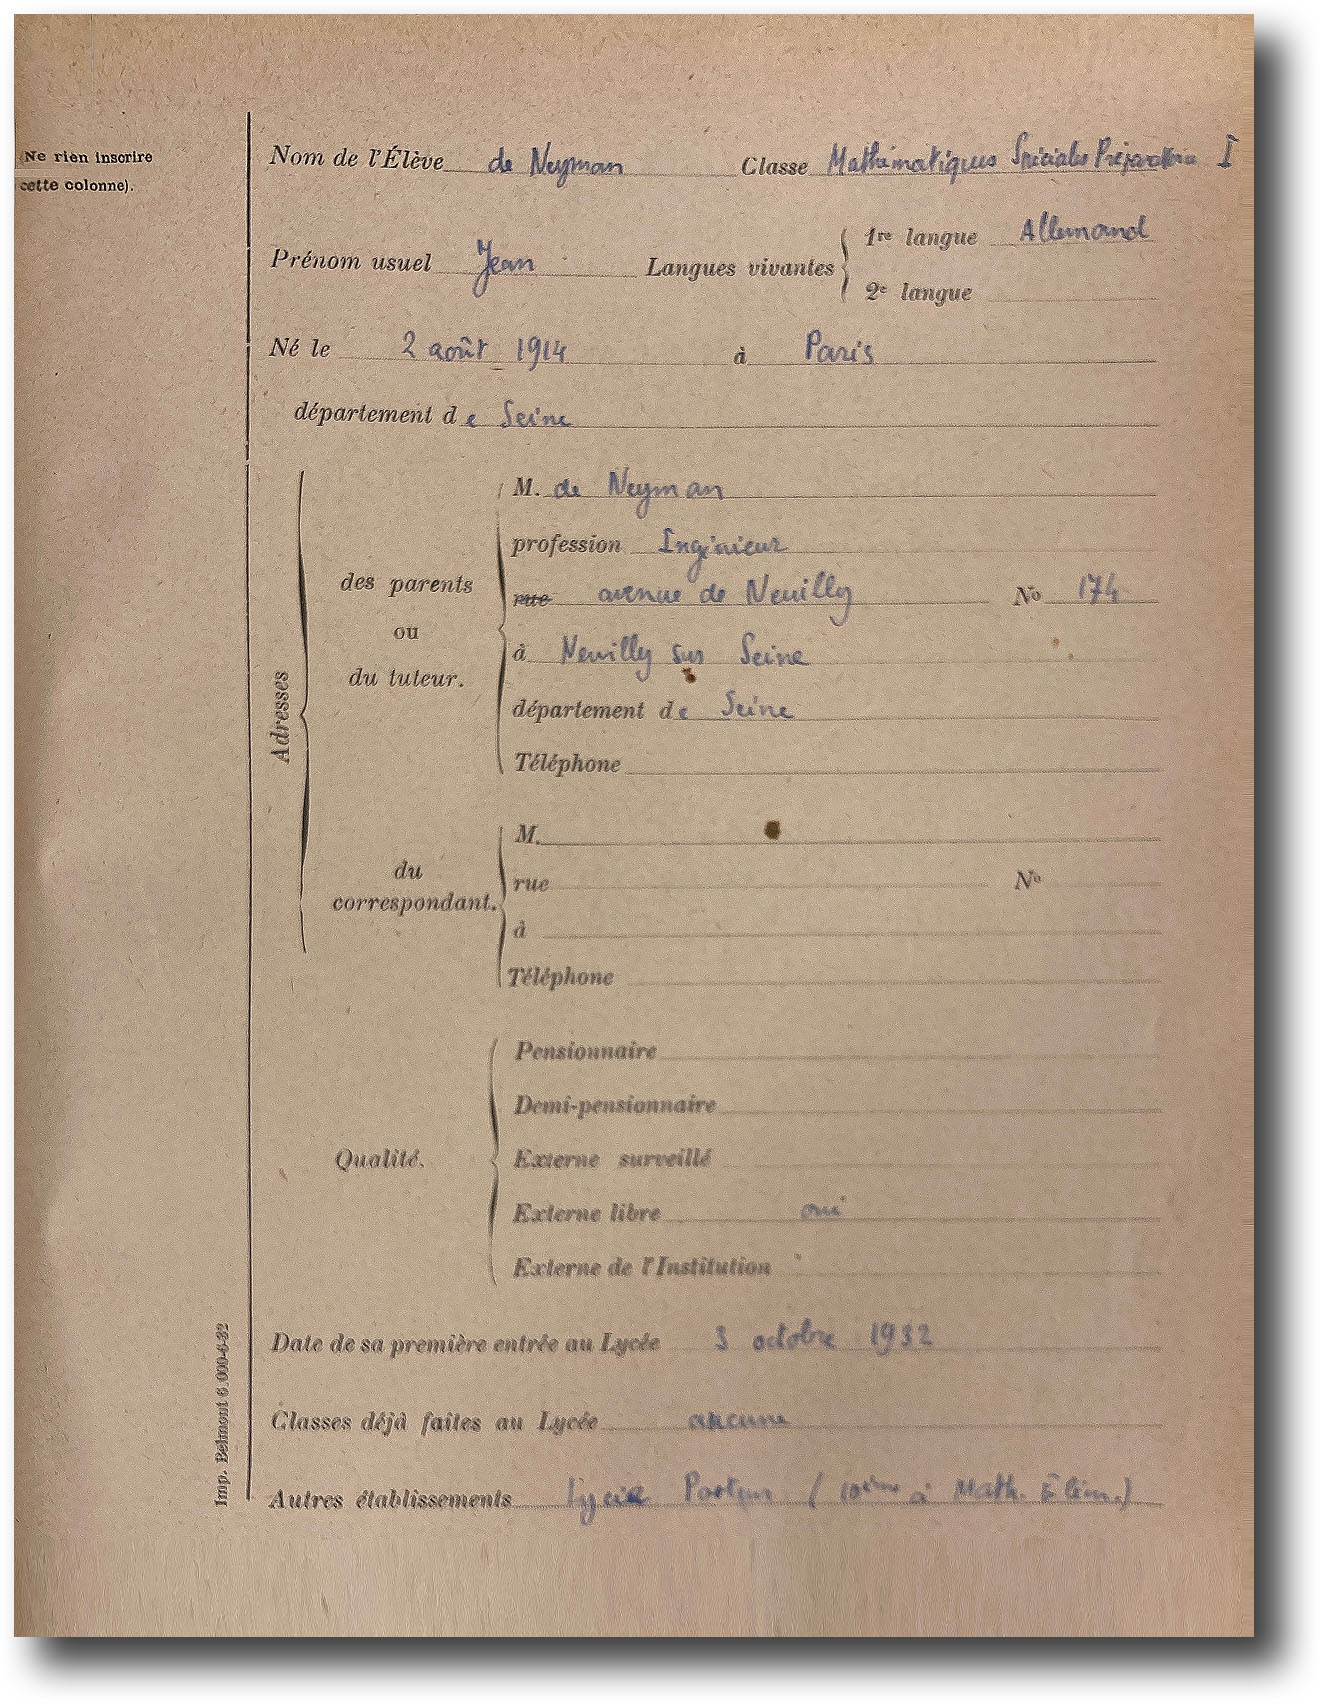 Ne rien inscrire
cette colonne).
Nom de l'Élève de Neyman Classe Mathématiques Spéciales Préparatoire I
Prénom usuel Jean Langues vivantes 1re langue Allemand
2e langue
Né le 2 août 1914 à Paris
département de Seine
Adresses
des parents
ou
du tuteur.
M. de Neyman
profession Ingénieur
rue avenue de Neuilly No 174
à Neuilly sur Seine
département de Seine
Téléphone
du
correspondant.
M.
rue No
à
Téléphone
Qualité.
Pensionnaire
Demi-pensionnaire
Externe surveillé
Externe libre oui
Externe de l'Institution
Date de sa première entrée au Lycée 3 octobre 1932
Classes déjà faites au Lycée aucune
Autres établissements Lycée Pasteur (10ième à Math. Élém.)
Imp. Belmont 6.000-6-32